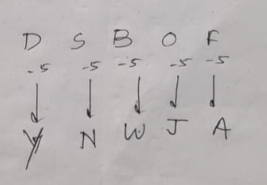 D S B O F
-5 -5 -5 -5 -5
Y N W J A